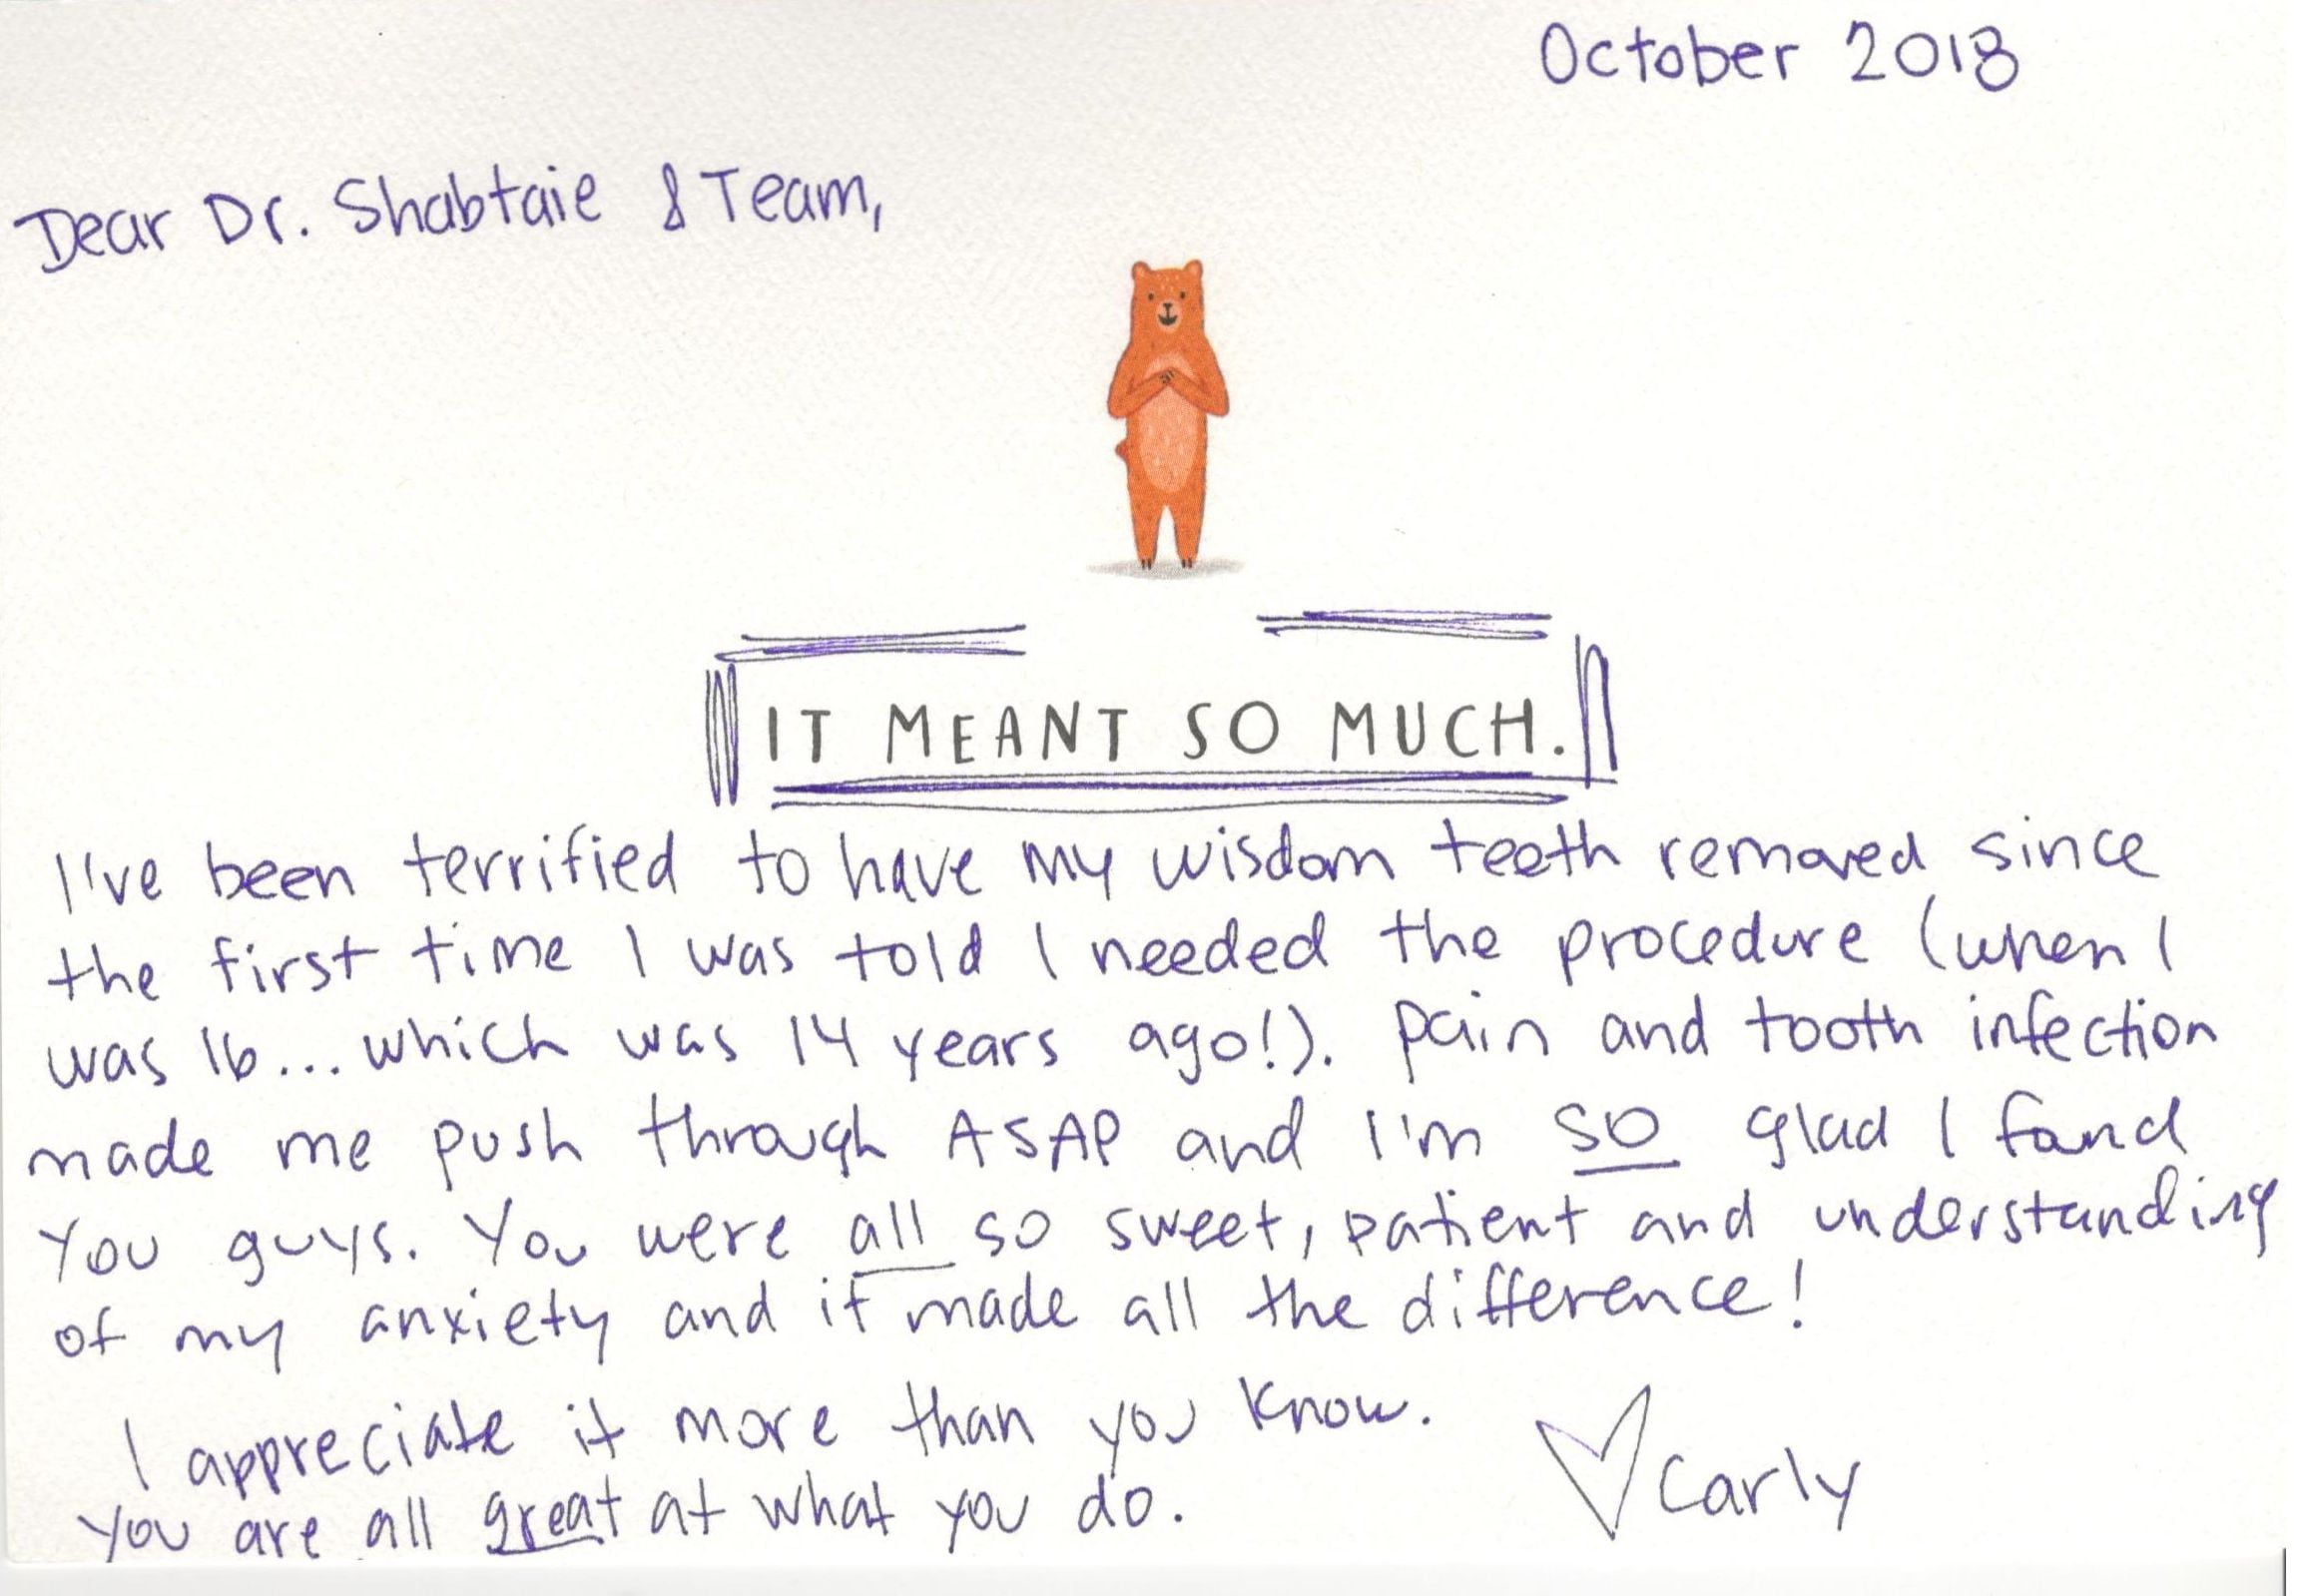 October 2018
Dear Dr. Shabtaie & Team,
IT MEANT SO MUCH.
I've been terrified to have my wisdom teeth removed since
the first time I was told I needed the procedure (when I
was 16... which was 14 years ago!). Pain and tooth infection
made me push through ASAP and I'm so glad I found
you guys. You were all so sweet, patient and understanding
of my anxiety and it made all the difference!
I appreciate it more than you know.
You are all great at what you do.
♡ Carly